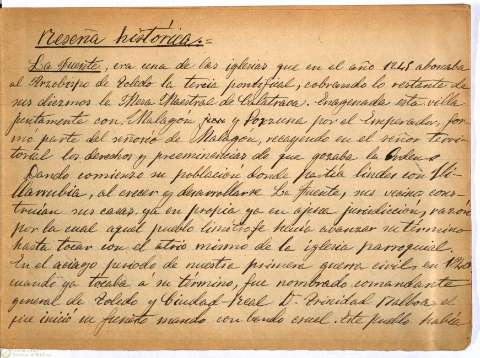 Reseña histórica.=
La Fuente, era una de las iglesias que en el año 1245 abonaba
al Arzobispo de Toledo la tercia pontifical, cobrando lo restante de
sus diezmos la Mesa Maestral de Calatrava. Enagenada esta villa
juntamente con Malagón, y Porzuna por el Emperador, for-
mó parte del señorío de Malagón, recayendo en el señor terri-
torial los derechos y preeminencias de que gozaba la Orden.
Dando comienzo su población donde partía lindes con Vi-
llarrubia, al crecer y desarrollarse La Fuente, sus vecinos cons-
truían sus casas ya en propia ya en agena jurisdicción, razón
por la cual aquel pueblo limítrofe hacía avanzar su término
hasta tocar con el atrio mismo de la iglesia parroquial.
En el aciago periodo de nuestra primera guerra civil, en 1840
cuando ya tocaba a su término, fue nombrado comandante
general de Toledo y Ciudad Real D. Trinidad Balboa el
que inició su funesto mando con bando cruel. Este pueblo había